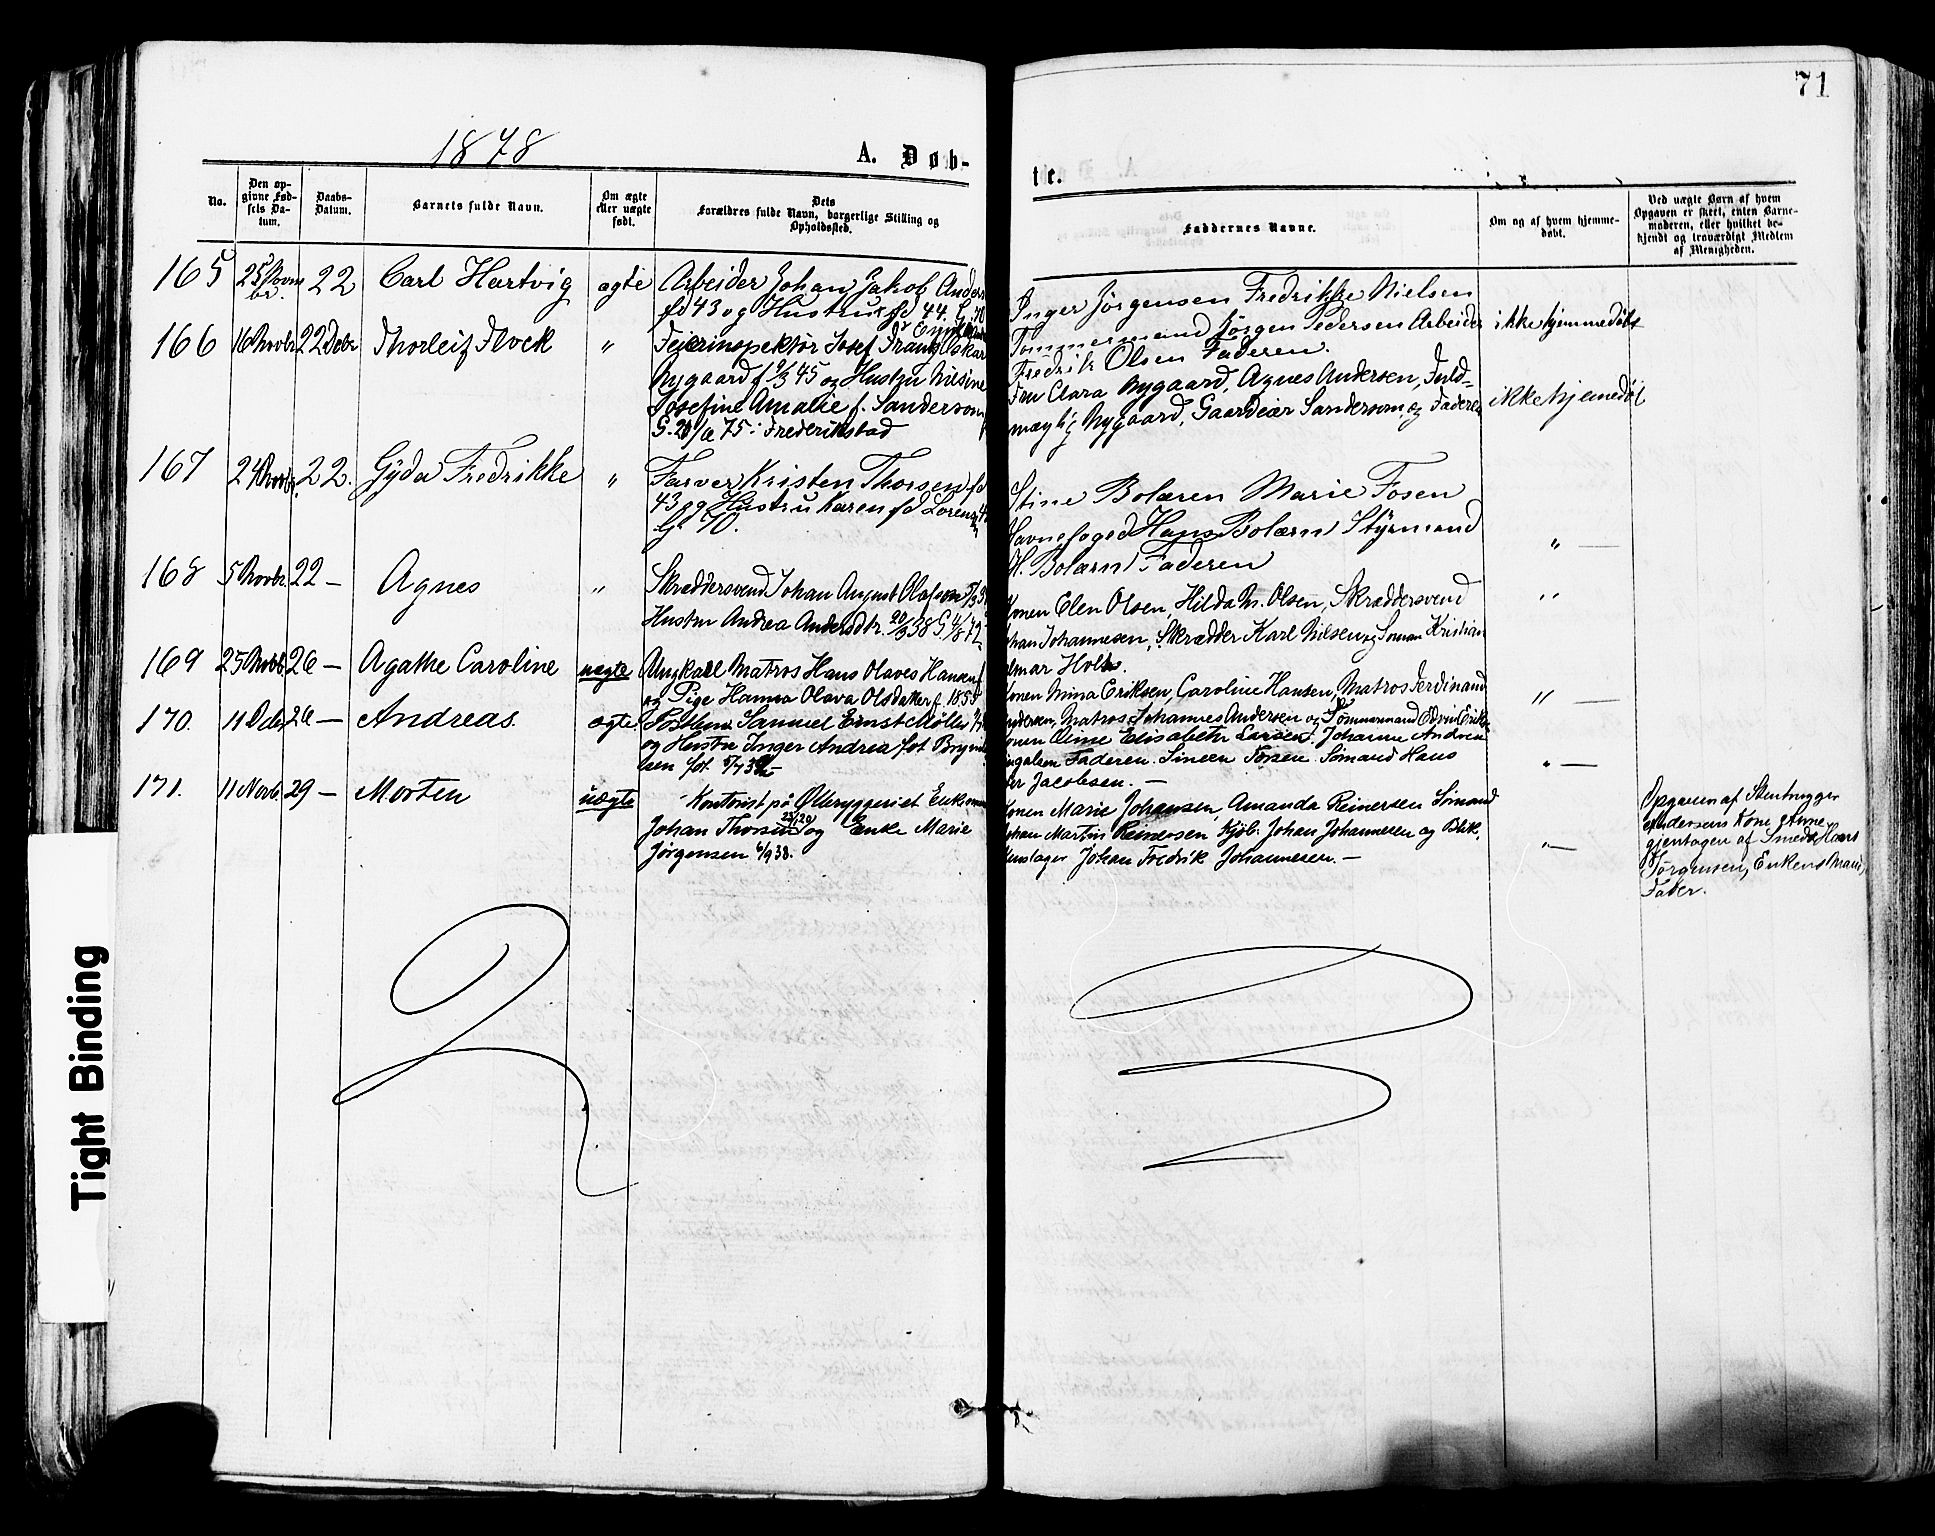 71
1878
A. Døb-
te.
No.
Den op-
givne Fød-
sels Da-
tum.
Daabs-
Datum.
Barnets fulde Navn.
Om ægte
eller uægte
født.
Dets
Forældres fulde Navn, borgerlige Stilling og
Opholdssted.
Faddernes Navne.
Om og af hvem hjemme-
døbt.
Ved uægte Børn af hvem
Opgaven er skeet, enten Barne-
moderen, eller hvilket be-
kjendt og troværdigt Medlem
af Menigheden.
165 25 Novem
br. 22 Carl Hartvig ægte Arbeider Johan Jakob Anders
fd 43 og Hustru fd 44. G. 70
Inger Jörgensen Fredrikke Nielsen
Tømmermand Jörgen Pedersen Arbeider
Fredrik Olsen Faderen.
ikke hjemmedöbt
166 16 Novbr 22 Debr Thorleif Flock " Feierinspektör Josef Frantz Oskar
Nygaard f 9/3 45 og Hustru Nilsine
Josefine Amalie f. Sanderson
G. 75 i Frederikstad
Fru Clara Nygaard, Agnes Andersen, Fuld-
mægtig Nygaard, Gaardeier Sanderson, og Faderen
ikke hjemedöbt
167 24 Novbr. 22. Gyda Fredrikke " Farver Kristen Thorsen fd
43 og Hustru Karen fd Lorenz
G. 70.
Stine Bolæren Marie Fosen
Havnefoged Hans Bolærn Styrmand
H. Bolærn Faderen
" —
168 5 Novbr. 22 — Agnes " Skræddersvend Johan August Olafson
Hustru Andrea Andersdtr. 20/9 38 G. 4/8 72
Konen Elen Olsen, Hilda M. Olsen, Skræddersvend
Johan Johannesen, Skrædder Karl Nilsen og Söman Kristian
Holm.
"
169 25 Novb. 26 — Agathe Caroline uægte Ungkarl Matros Hans Olaves Hansen f
og Pige Hanna Olava Olsdatter f. 1855
Konen Mina Eriksen, Caroline Hansen, Matros Ferdinand
Andersen, Matros Johannes Andersen og Tömmermand Edvin Eriks
" —
170. 11 Debr 26 — Andreas. ægte Samuel Ernst Möller
og Hustru Inger Andrea föt Brynild
sen föt. 5/7 39 —
Konen Oline Elisabeth Larsen. Johanne Andrea
Faderen. Simen Torsen. Sömand Hans
Jacobsen. —
" —
171. 11 Novb. 29 — Morten uægte Kontorist på Ölbryggeriet Enkemand
Johan Thorsen og Enke Marie
Jörgensen 6/9 38.
Konen Marie Johansen, Amanda Reinersen Sömand
Johan Martin Reinersen Kjöb. Johan Johannesen og Blik.
kenslager Johan Fredrik Johannesen. —
" —
Opgaven af Stenhugger
Andersens Kone Anne
gjentagen af Smed Hans
Jörgensen, Enkens Marie
Fader.
Tight Binding